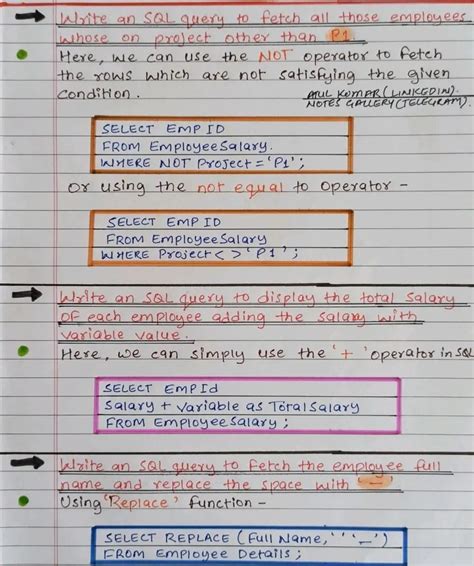 Write an SQL query to fetch all those employees
whose on project other than P1.
Here, we can use the NOT operator to fetch
the rows which are not satisfying the given
condition.
ATUL KUMAR (LINKEDIN).
NOTES GALLERY (TELEGRAM).
SELECT EMP ID
FROM EmployeeSalary.
WHERE NOT Project = 'P1';
or using the not equal to operator -
SELECT EMP ID
FROM EmployeeSalary
WHERE Project < > 'P1';
Write an SQL query to display the total salary
of each employee adding the salary with
variable value.
Here, we can simply use the '+' operator in SQL
SELECT EmpId
Salary + Variable as TotalSalary
FROM EmployeeSalary;
Write an SQL query to fetch the employee full
name and replace the space with
Using 'Replace' function -
SELECT REPLACE (Full Name, ' ' '_')
FROM Employee Details;